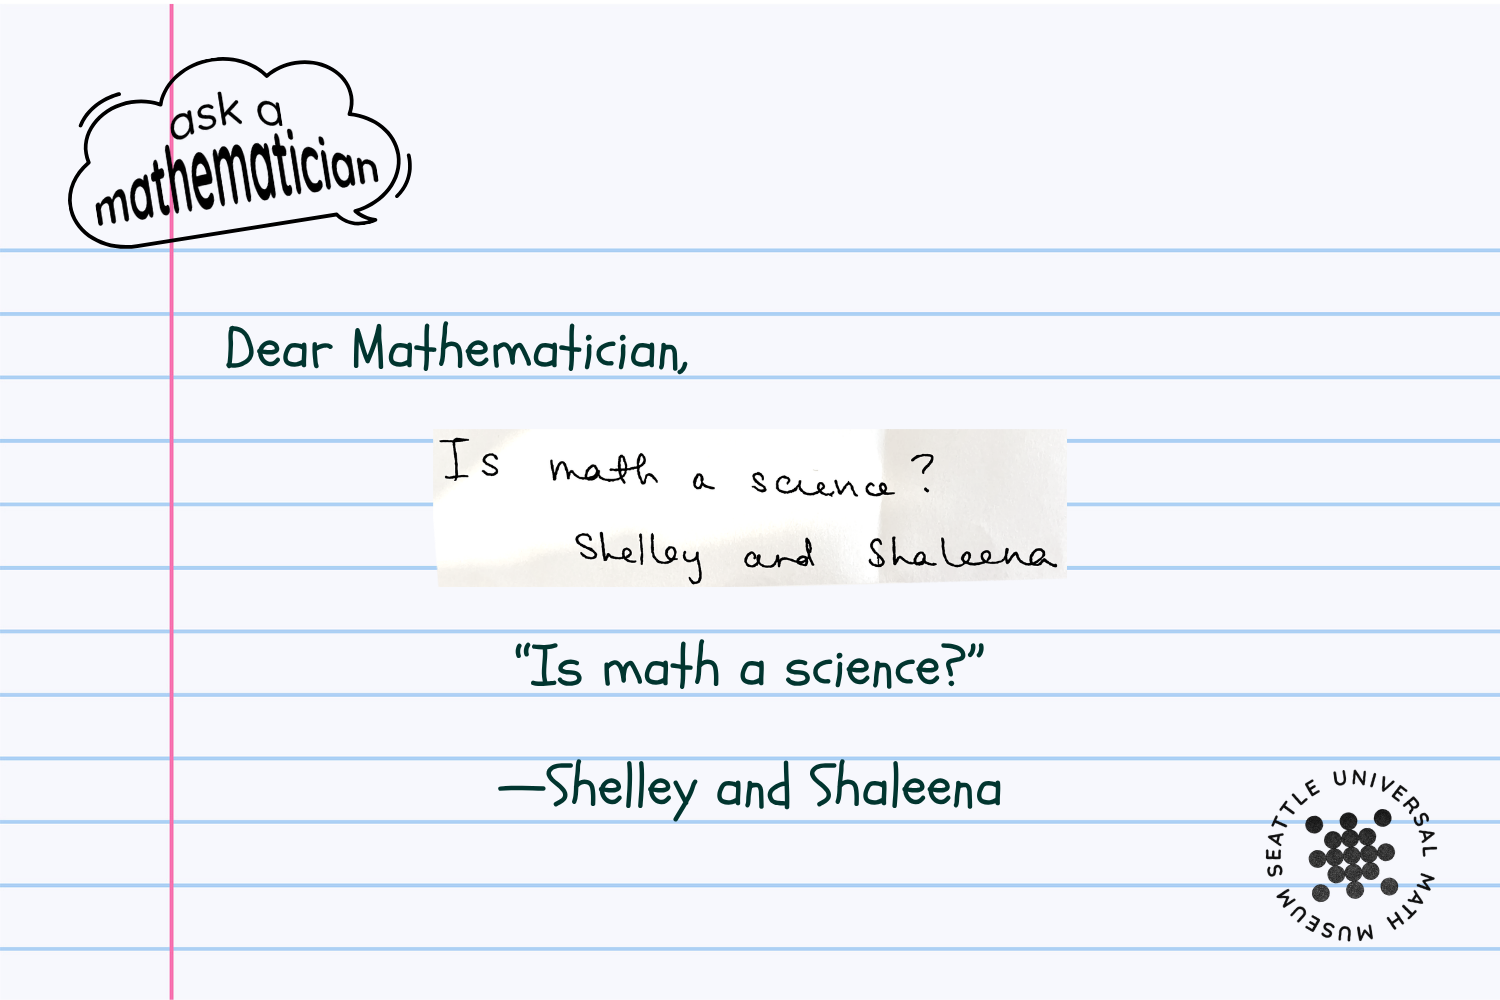 ask a
mathematician
Dear Mathematician,
Is math a science?
Shelley and Shaleena
“Is math a science?”
—Shelley and Shaleena
SEATTLE UNIVERSAL MATH MUSEUM